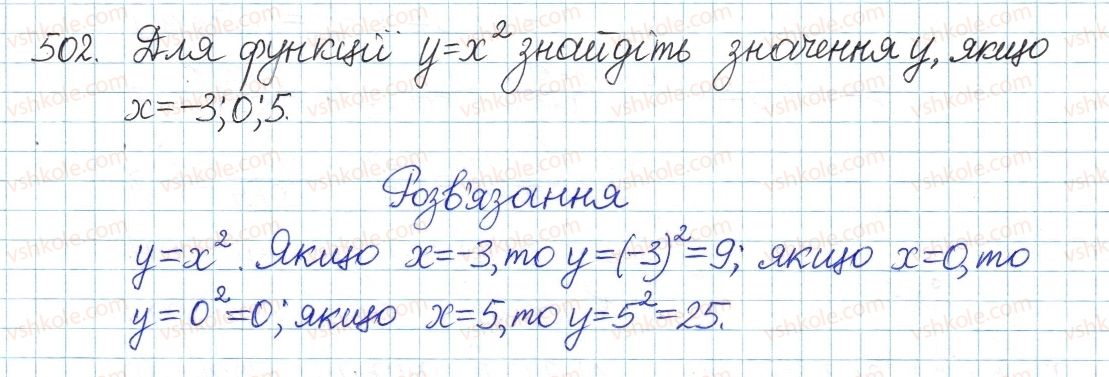 502. Для функції y=x² знайдіть значення y, якщо
x=-3; 0; 5.
Розв'язання
y=x². Якщо x=-3, то y=(-3)²=9; якщо x=0, то
y=0²=0; якщо x=5, то y=5²=25.